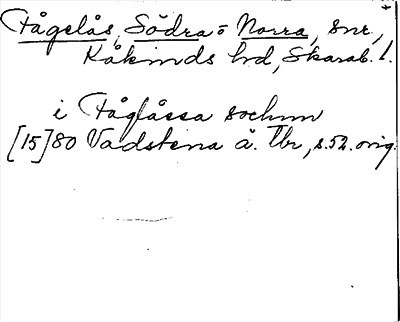 Fågelås, Södra o Norra, snr,
Kåkinds hd, Skarab. l.
i Fåglåssa sochnn
[15]80 Vadstena ä. Tbr, s.52. orig.